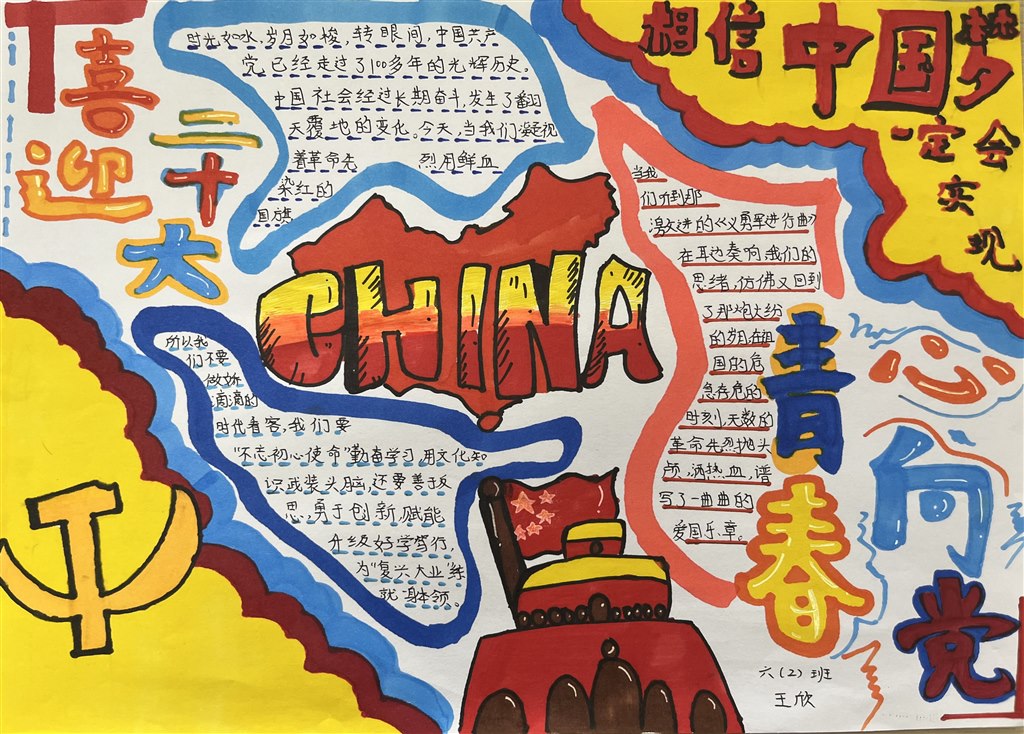 喜
迎
二
十
大
时光如水,岁月如梭,转眼间,中国共产
党已经走过了100多年的光辉历史。
中国社会经过长期奋斗,发生了翻
天覆地的变化。今天,当我们凝视
着革命先烈用鲜血
染红的
国旗
相信中国梦
一定会
实
现
CHINA
当我
们听到那
激进的《义勇军进行曲》
在耳边奏响,我们的
思绪,仿佛又回到
了那炮火纷
的岁月,在祖
国的危
急存危的
时刻,无数的
革命先烈抛头
颅,洒热血,谱
写了一曲曲的
爱国乐章。
所以我
们不要
做娇
滴滴的
时代看客,我们要
“不忘初心使命”勤奋学习,用文化知
识武装头脑,还要善于反
思,勇于创新,赋能
升级好学笃行,
为“复兴大业”练
就身本领。
青
春
心
向
党
六(2)班
王欣